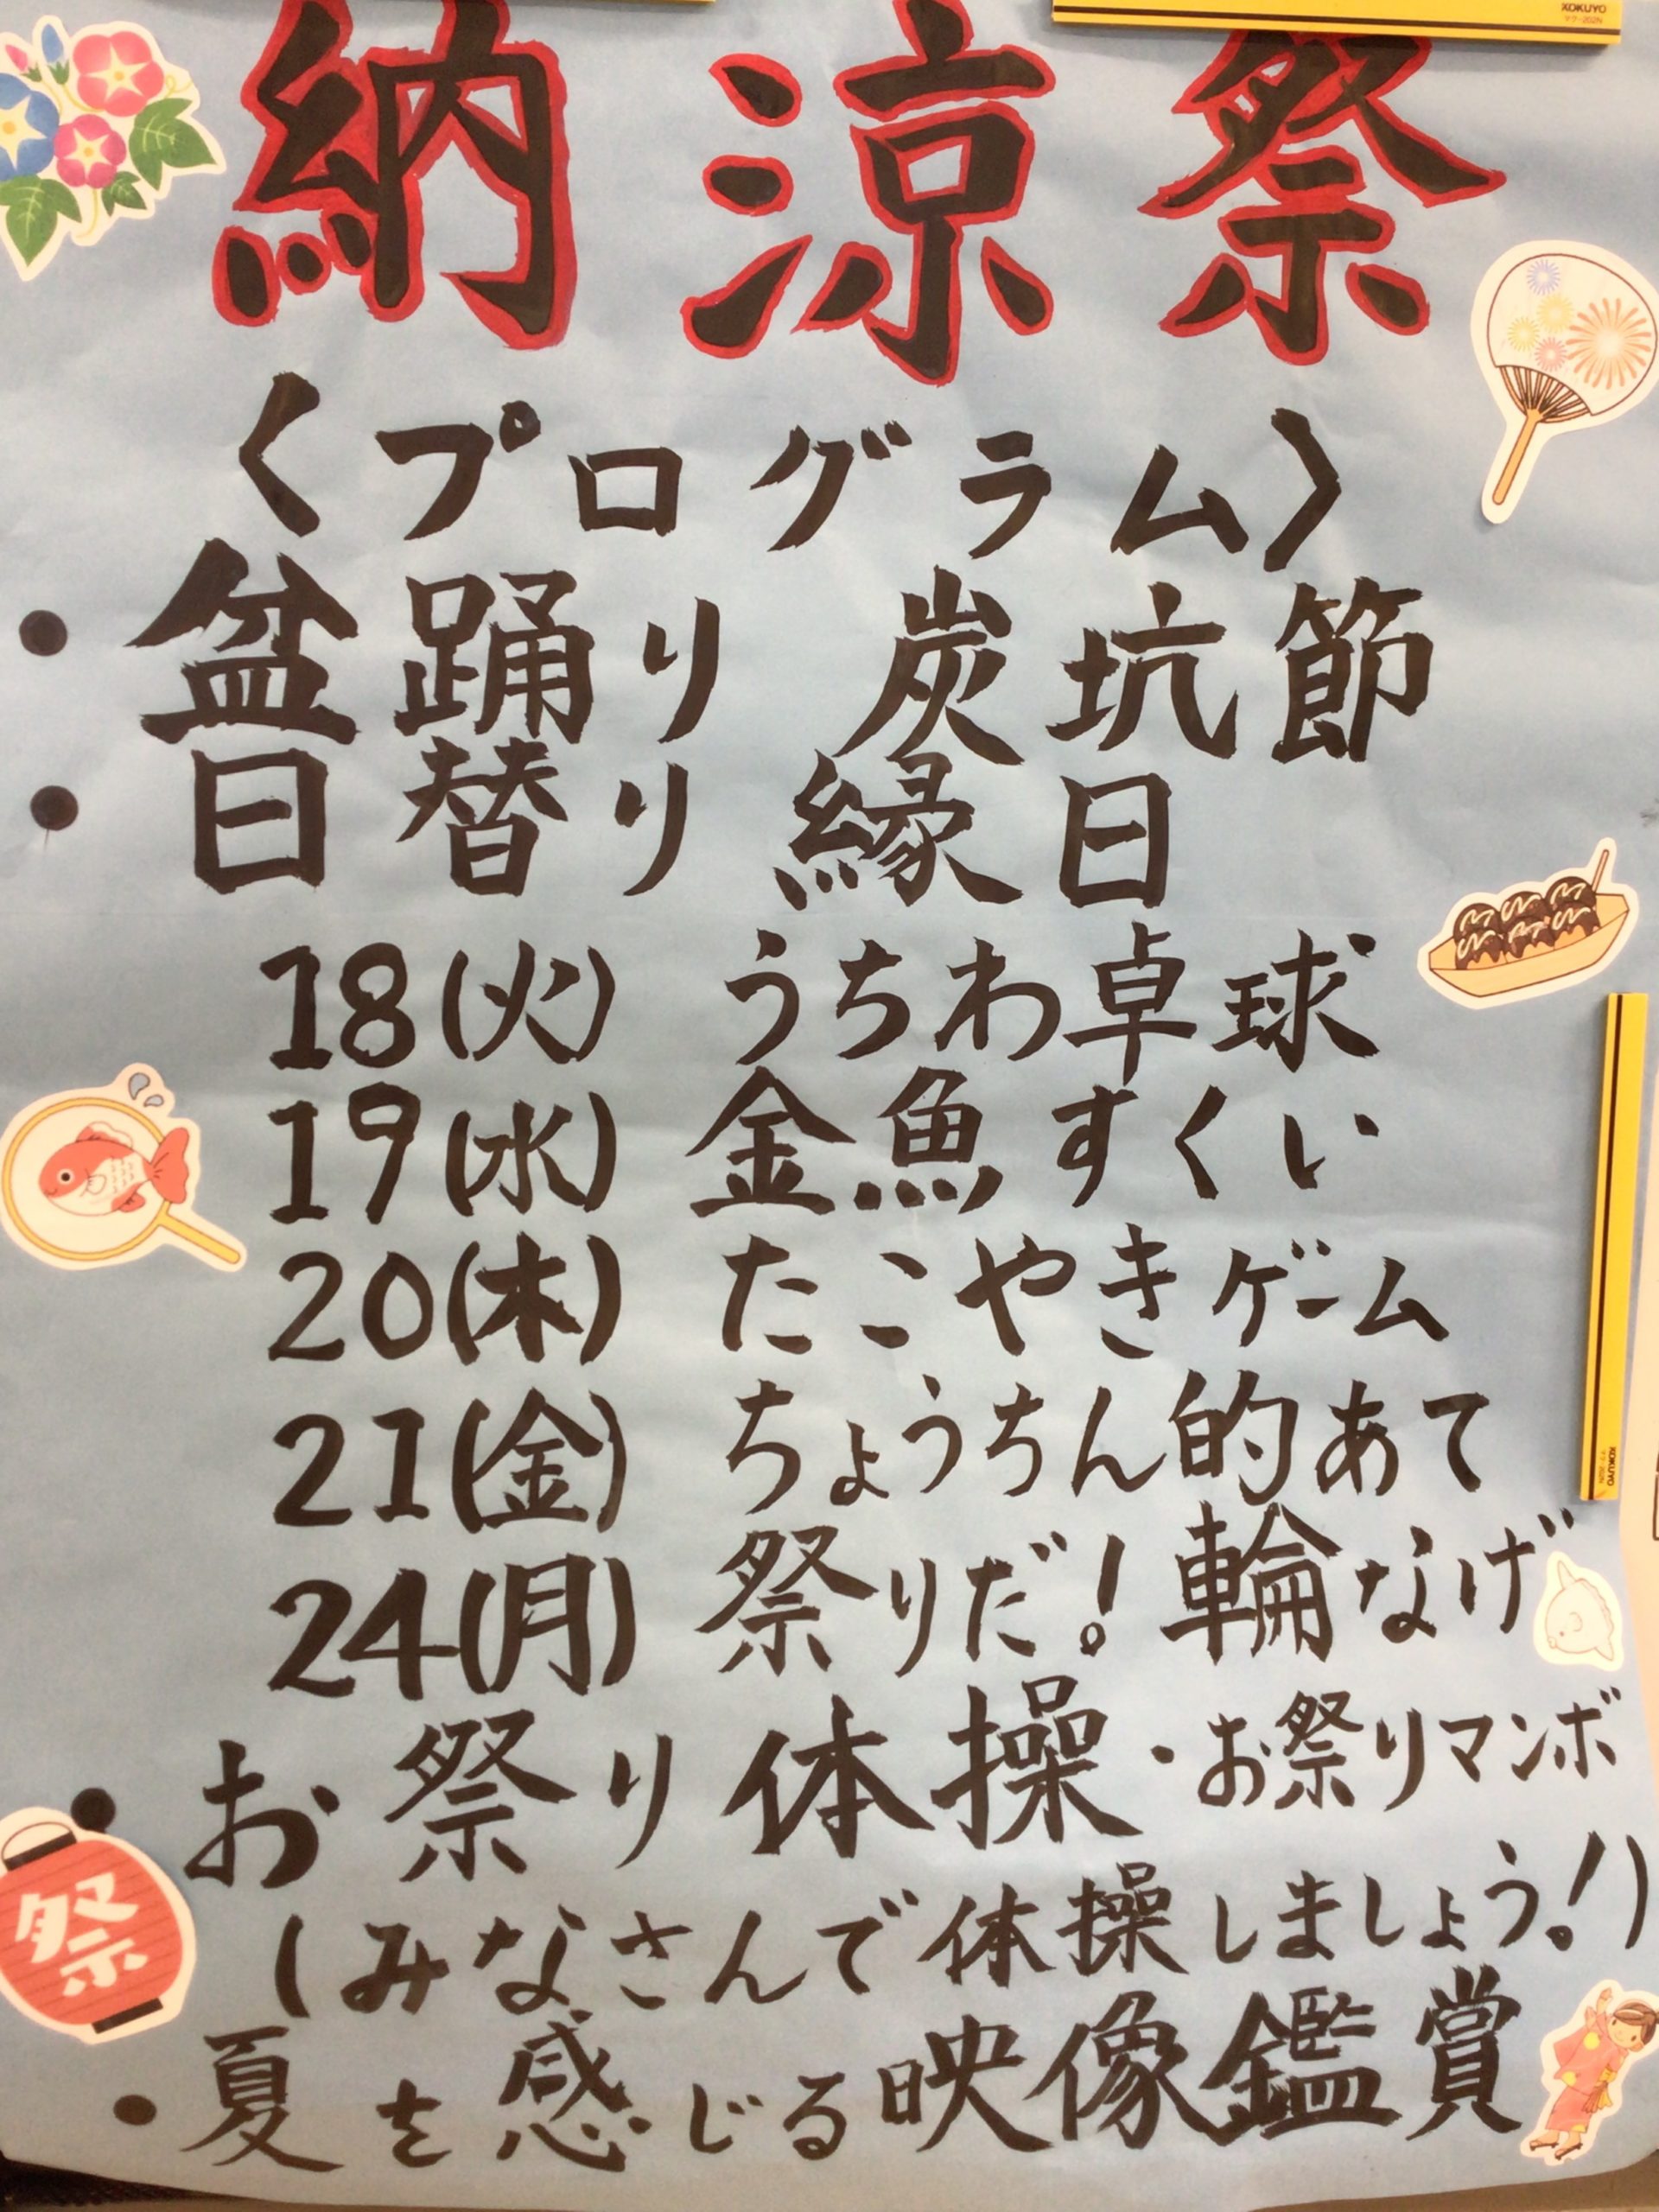 納涼祭
〈プログラム〉
・盆踊り 炭坑節
・日替り 縁日
18(火) うちわ卓球
19(水) 金魚すくい
20(木) たこやきゲーム
21(金) ちょうちん的あて
24(月) 祭りだ!輪なげ
・お祭り体操・お祭りマンボ
(みなさんで体操しましょう!)
・夏を感じる映像鑑賞
祭
KOKUYO
マク-202N
KOKUYO
マク-202N